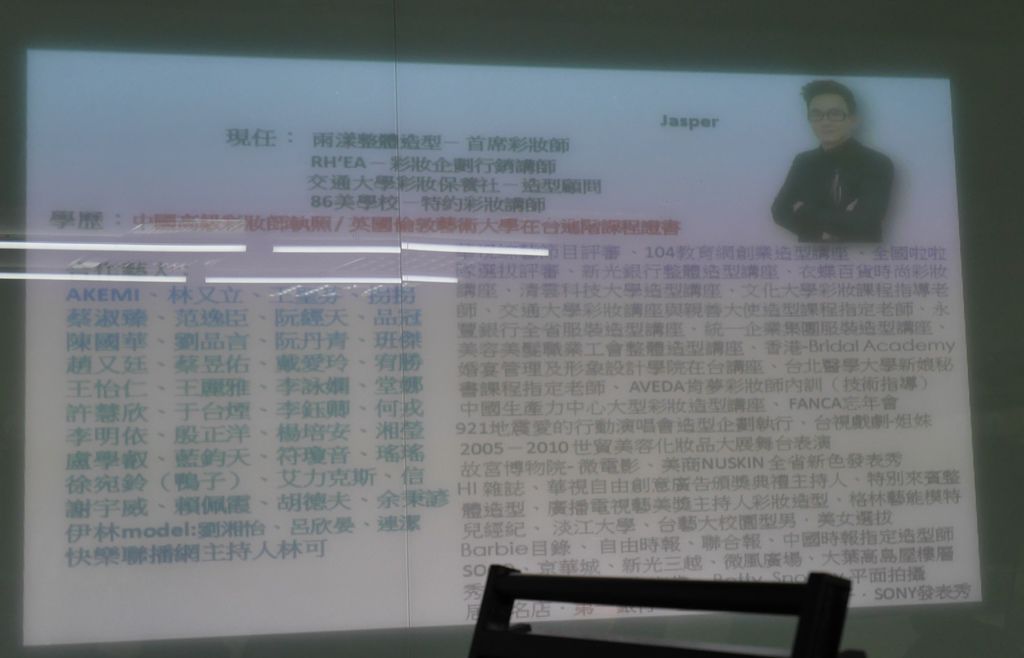 Jasper
現任： 雨漾整體造型－首席彩妝師
RH'EA－彩妝企劃行銷講師
交通大學彩妝保養社－造型顧問
86美學校－特約彩妝講師
學歷：中國高級彩妝師執照/英國倫敦藝術大學在台進階課程證書
合作藝人：
AKEMI、林又立、
蔡淑臻、范逸臣、阮經天、品冠
陳國華、劉品言、阮丹青、班傑
趙又廷、蔡昱佑、戴愛玲、宥勝
王怡仁、王麗雅、李詠嫻、堂娜
許慧欣、于台煙、李鈺卿、何戎
李明依、殷正洋、楊培安、湘瑩
盧學叡、藍鈞天、符瓊音、瑤瑤
徐宛鈴（鴨子）、艾力克斯、信
謝宇威、賴佩霞、胡德夫、余秉諺
伊林model:劉湘怡、呂欣晏、連潔
快樂聯播網主持人林可
節目評審、104教育網創業造型講座、全國啦啦
隊選拔評審、新光銀行整體造型講座、衣蝶百貨時尚彩妝
講座、清雲科技大學造型講座、文化大學彩妝課程指導老
師、交通大學彩妝講座與親善大使造型課程指定老師、永
豐銀行全省服裝造型講座、統一企業集團服裝造型講座、
美容美髮職業工會整體造型講座、香港-Bridal Academy
婚宴管理及形象設計學院在台講座、台北醫學大學新娘秘
書課程指定老師、AVEDA肯夢彩妝師內訓（技術指導）
中國生產力中心大型彩妝造型講座、FANCA忘年會
921地震愛的行動演唱會造型企劃執行、台視戲劇-姐妹
2005－2010世貿美容化妝品大展舞台表演
故宮博物院-微電影、美商NUSKIN全省新色發表秀
HI雜誌、華視自由創意廣告頒獎典禮主持人、特別來賓整
體造型、廣播電視藝美獎主持人彩妝造型、格林藝能模特
兒經紀、淡江大學、台藝大校園型男、美女選拔
Barbie目錄、自由時報、聯合報、中國時報指定造型師
SOGO、京華城、新光三越、微風廣場、大葉高島屋樓層
秀 平面拍攝
名店 SONY發表秀